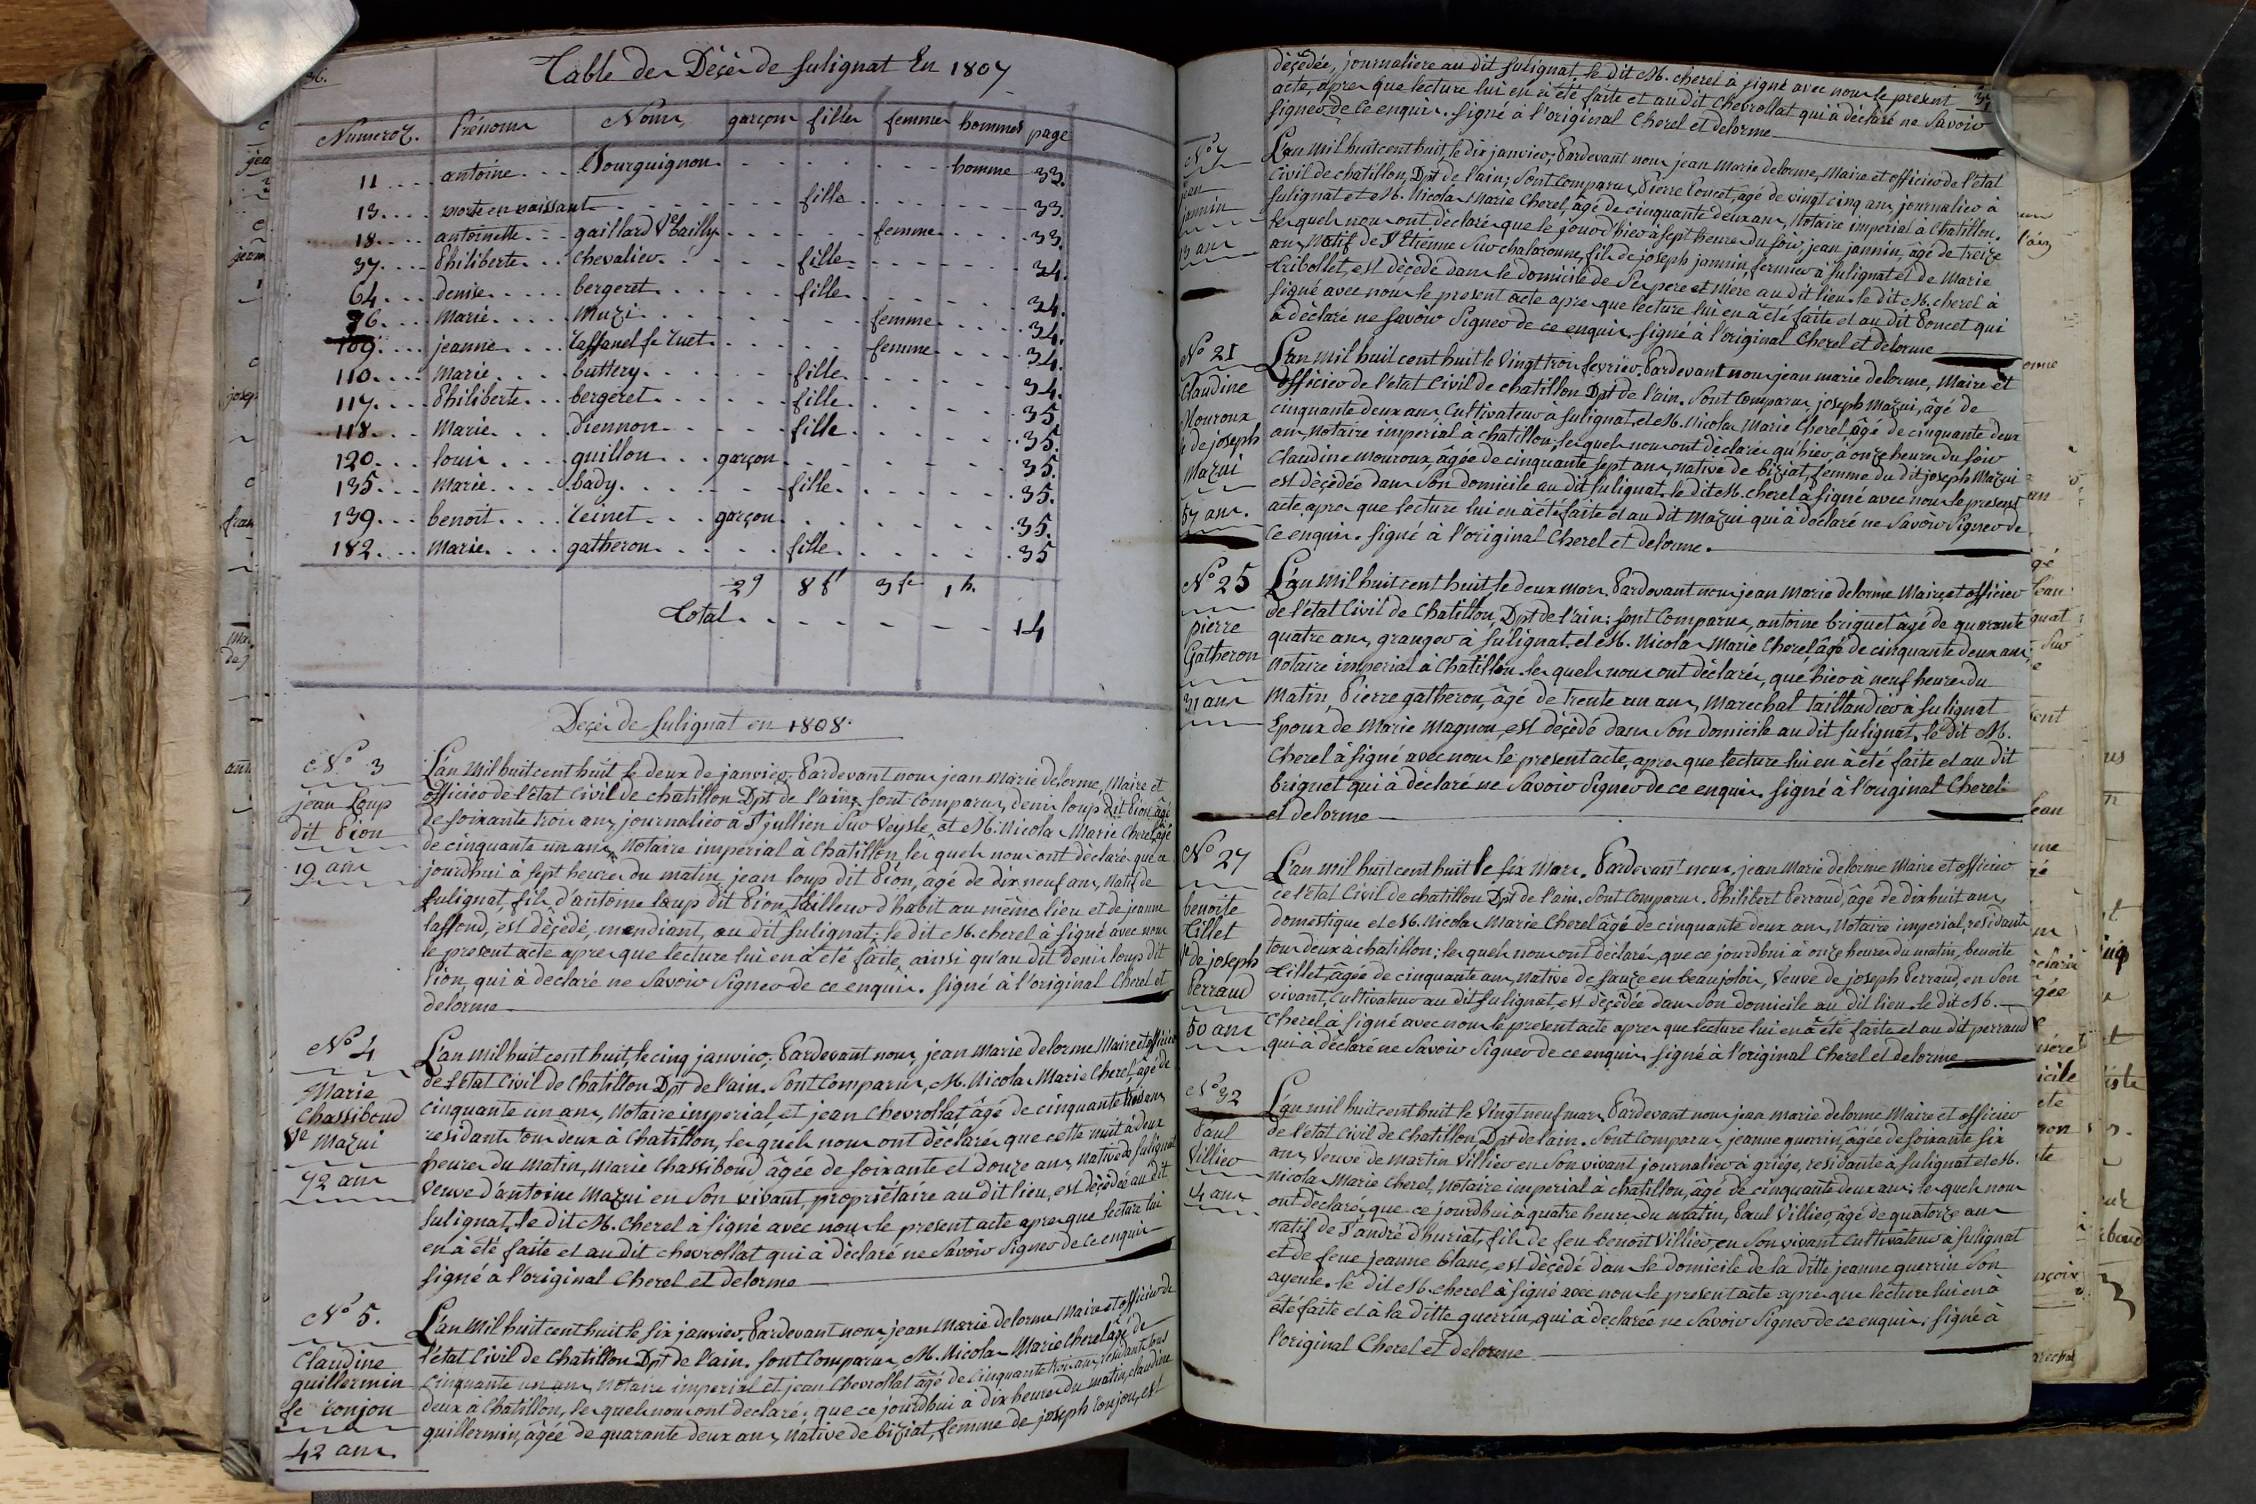 36.
Table des Décès de Sulignat En 1807
Numeroz. Prénoms Noms garçons filles femmes hommes page
11 antoine Bourguignon homme 33.
13 morte en naissant fille 33.
18 antoinette gaillard Ve bailly femme 33.
37 Philiberte Chevalier fille 34.
64 denise bergeret fille 34.
76 Marie Muzi femme 34.
109 jeanne taffanel fe femme 34.
110 Marie buttery fille 34.
117 Philiberte bergeret fille 35
118 Marie Diennon fille 35.
120 louis guillon garçon 35.
135 Marie bady fille 35.
139 benoit garçon 35.
182 Marie gatheron fille 35
2g 8f 3f 1h.
Total 14
Décès de Sulignat en 1808.
No 3
jean Loup
dit Pion
19 ans
L'an Mil huit cent huit le deux de janvier; Pardevant nous jean Marie delorme, Maire et
officier de l'état Civil de chatillon Dpt de l'ain; sont Comparus, denis loup dit Pion, âgé
de soixante trois ans, journalier à St jullien Sur Veysle, et M. Nicolas Marie Cherel, âgé
de cinquante un ans, Notaire imperial à Chatillon, lesquels nous ont déclaré que ce
jourdhui à sept heures du matin, jean loup dit Pion, âgé de dix neuf ans, Natif de
Sulignat, fils d'antoine loup dit Pion, tailleur d'habit au même lieu et de jeanne
laffond, est décédé, mendiant, au dit Sulignat; le dit M. cherel à signé avec nous
le present acte apres que lecture lui en à été faite, ainsi qu'au dit denis loup dit
Pion, qui à déclaré ne Savoir Signer de ce enquis. signé à l'original Cherel et
delorme
No 4
Marie
Chassiboud
Ve Mazui
72 ans
L'an mil huit cent huit, le cinq janvier; Pardevant nous, jean Marie delorme Maire et officier
de l'état Civil de Chatillon Dpt de l'ain. Sont Comparus, M. Nicolas Marie Cherel, âgé de
cinquante un ans, Notaire imperial, et jean Chevrollat âgé de cinquante trois ans
residants tous deux à Chatillon, lesquels nous ont déclarés que cette nuit à deux
heures du matin, Marie Chassiboud âgée de soixante et douze ans, native de Sulignat
veuve d'antoine Mazui en Son vivant, propriétaire au dit lieu, est décédée au dit
Sulignat, le dit M. Cherel à signé avec nous le present acte apres que lecture lui
en à été faite et au dit chevrollat qui à déclaré ne Savoir Signer de ce enquis
signé à l'original Cherel et delorme
No 5.
Claudine
guillermin
fe conjon
42 ans
L'an Mil huit cent huit le six janvier, Pardevant nous, jean Marie delorme Maire et officier de
l'état Civil de Chatillon Dpt de l'ain. sont Comparus, M. Nicolas Marie Cherel âgé de
cinquante un ans, notaire imperial et jean Chevrollat âgé de Cinquante trois ans, residants tous
deux à Chatillon, lesquels nous ont declaré; que ce jourdhui à dix heures du matin, claudine
guillermin, âgée de quarante deux ans, native de biziat, femme de joseph Conjon, est
décédée, journaliere au dit Sulignat. le dit M. cherel à signé avec nous le present
acte, apres que lecture lui en à été faite et au dit chevrollat qui à déclaré ne Savoir
signer de ce enquis. signé à l'original Cherel et delorme
No 7
jean
jannin
13 ans
L'an Mil huit cent huit, le dix janvier; Pardevant nous jean Marie delorme, Maire et officier de l'état
Civil de chatillon, Dpt de l'ain; sont Comparus Pierre Poncet, âgé de vingt cinq ans journalier à
Sulignat et M. Nicolas Marie Cherel, âgé de cinquante deux ans, Notaire imperial à Chatillon,
lesquels nous ont déclaré que le jour d'hier à sept heures du soir, jean jannin, âgé de treize
ans Natif de St Etienne Sur chalaronne, fils de joseph jannin, fermier à Sulignat et de Marie
tribollet, est décédé dans le domicile de Ses pere et mere au dit lieu. le dit M. cherel à
signé avec nous le present acte apres que lecture lui en à été faite et au dit Poncet qui
à déclaré ne Savoir Signer de ce enquis, signé à l'original Cherel et delorme
No 21
Claudine
Mouroux
fe de joseph
Mazui
57 ans.
L'an mil huit cent huit le Vingt trois fevrier. Pardevant nous jean marie delorme, Maire et
officier de l'état Civil de chatillon Dpt de l'ain. Sont Comparus, joseph Mazui, âgé de
cinquante deux ans Cultivateur à Sulignat, et M. Nicolas Marie Cherel âgé de cinquante deux
ans, Notaire imperial à chatillon; lesquels nous ont déclarés qu'hier, à onze heures du soir
Claudine Mouroux, âgée de cinquante sept ans, native de biziat, femme du dit joseph Mazui
est décédée dans son domicile au dit Sulignat. le dit M. cherel à signé avec nous le present
acte apres que lecture lui en à été faite et au dit Mazui qui à déclaré ne Savoir Signer de
ce enquis. signé à l'original Cherel et delorme.
No 25
pierre
Gatheron
31 ans
L'an Mil huit cent huit, le deux Mars. Pardevant nous jean Marie delorme Maire et officier
de l'état Civil de Chatillon, Dpt de l'ain; sont Comparus, antoine briguet âgé de quarante
quatre ans, granger à Sulignat, et M. Nicolas Marie Cherel, âgé de cinquante deux ans,
Notaire imperial à Chatillon. lesquels nous ont déclarés, que hier à neuf heures du
Matin, Pierre gatheron, âgé de trente un ans, Marechal taillandier à Sulignat
Epoux de Marie Magnon, est décédé dans Son domicile au dit Sulignat, le dit M.
Cherel à signé avec nous le present acte, apres que lecture lui en à été faite et au dit
briguet qui à déclaré ne Savoir Signer de ce enquis. signé à l'original Cherel
et delorme
No 27
benoite
Tillet
Ve de joseph
Perraud
50 ans
L'an mil huit cent huit le six Mars. Pardevant nous, jean Marie delorme Maire et officier
de l'état Civil de chatillon Dpt de l'ain. Sont Comparus. Philibert Perraud, âgé de dix huit ans,
domestique et M. Nicolas Marie Cherel âgé de cinquante deux ans, Notaire imperial, residants
tous deux à chatillon; lesquels nous ont déclaré, que ce jourdhui à onze heures du matin, benoite
Tillet, âgée de cinquante ans, native de Sauze en beaujolois, Veuve de joseph Perraud, en Son
vivant, Cultivateur au dit Sulignat, est décédée dans Son domicile au dit lieu. le dit M.
Cherel à signé avec nous le present acte apres que lecture lui en à été faite et au dit perraud
qui à déclaré ne Savoir Signer de ce enquis, signé à l'original Cherel et delorme
No 32
Paul
Villier
14 ans
L'an mil huit cent huit le Vingt neuf mars. Pardevant nous jean marie delorme Maire et officier
de l'état Civil de Chatillon Dpt de l'ain. Sont Comparus, jeanne guerrin, âgée de soixante six
ans, Veuve de Martin Villier en Son vivant journalier à griége, residante à Sulignat et M.
Nicolas Marie Cherel, Notaire imperial à chatillon, âgé de cinquante deux ans; lesquels nous
ont déclarés que ce jourdhui à quatre heures du matin, Paul Villier, âgé de quatorze ans
natif de St andré d'huriat, fils de feu benoit Villier, en Son vivant Cultivateur à Sulignat
et de feue jeanne blanc, est décédé dans le domicile de la ditte jeanne guerrin Son
ayeule. le dit M. cherel à signé avec nous le present acte apres que lecture lui en à
été faite et à la ditte guerrin, qui à déclarée ne Savoir Signer de ce enquis; signé à
l'original Cherel et delorme